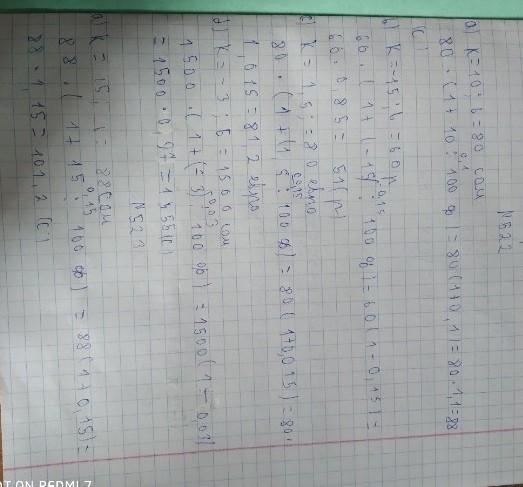 N522
a) K=10; b=80 сом
80·(1+10:100%)=80(1+0,1)=80·1,1=88
(с)
b) K=-15; b=60
60·(1+(-15):100%)=60(1-0,15)=
60·0,85=51
c) K=1,5; =80
80·(1+(1,5:100%)=80(1+0,015)=80·
1,015=812
d) K=-3; b=1500 сом
1500·(1+(-3):100%)=1500(1-0,03)
=1500·0,97=1455(с)
N523
a) K=15; b=88сом
88·(1+15:100%)=88(1+0,15)=
88·1,15=101,2 (с)
OT ON REDMI 7